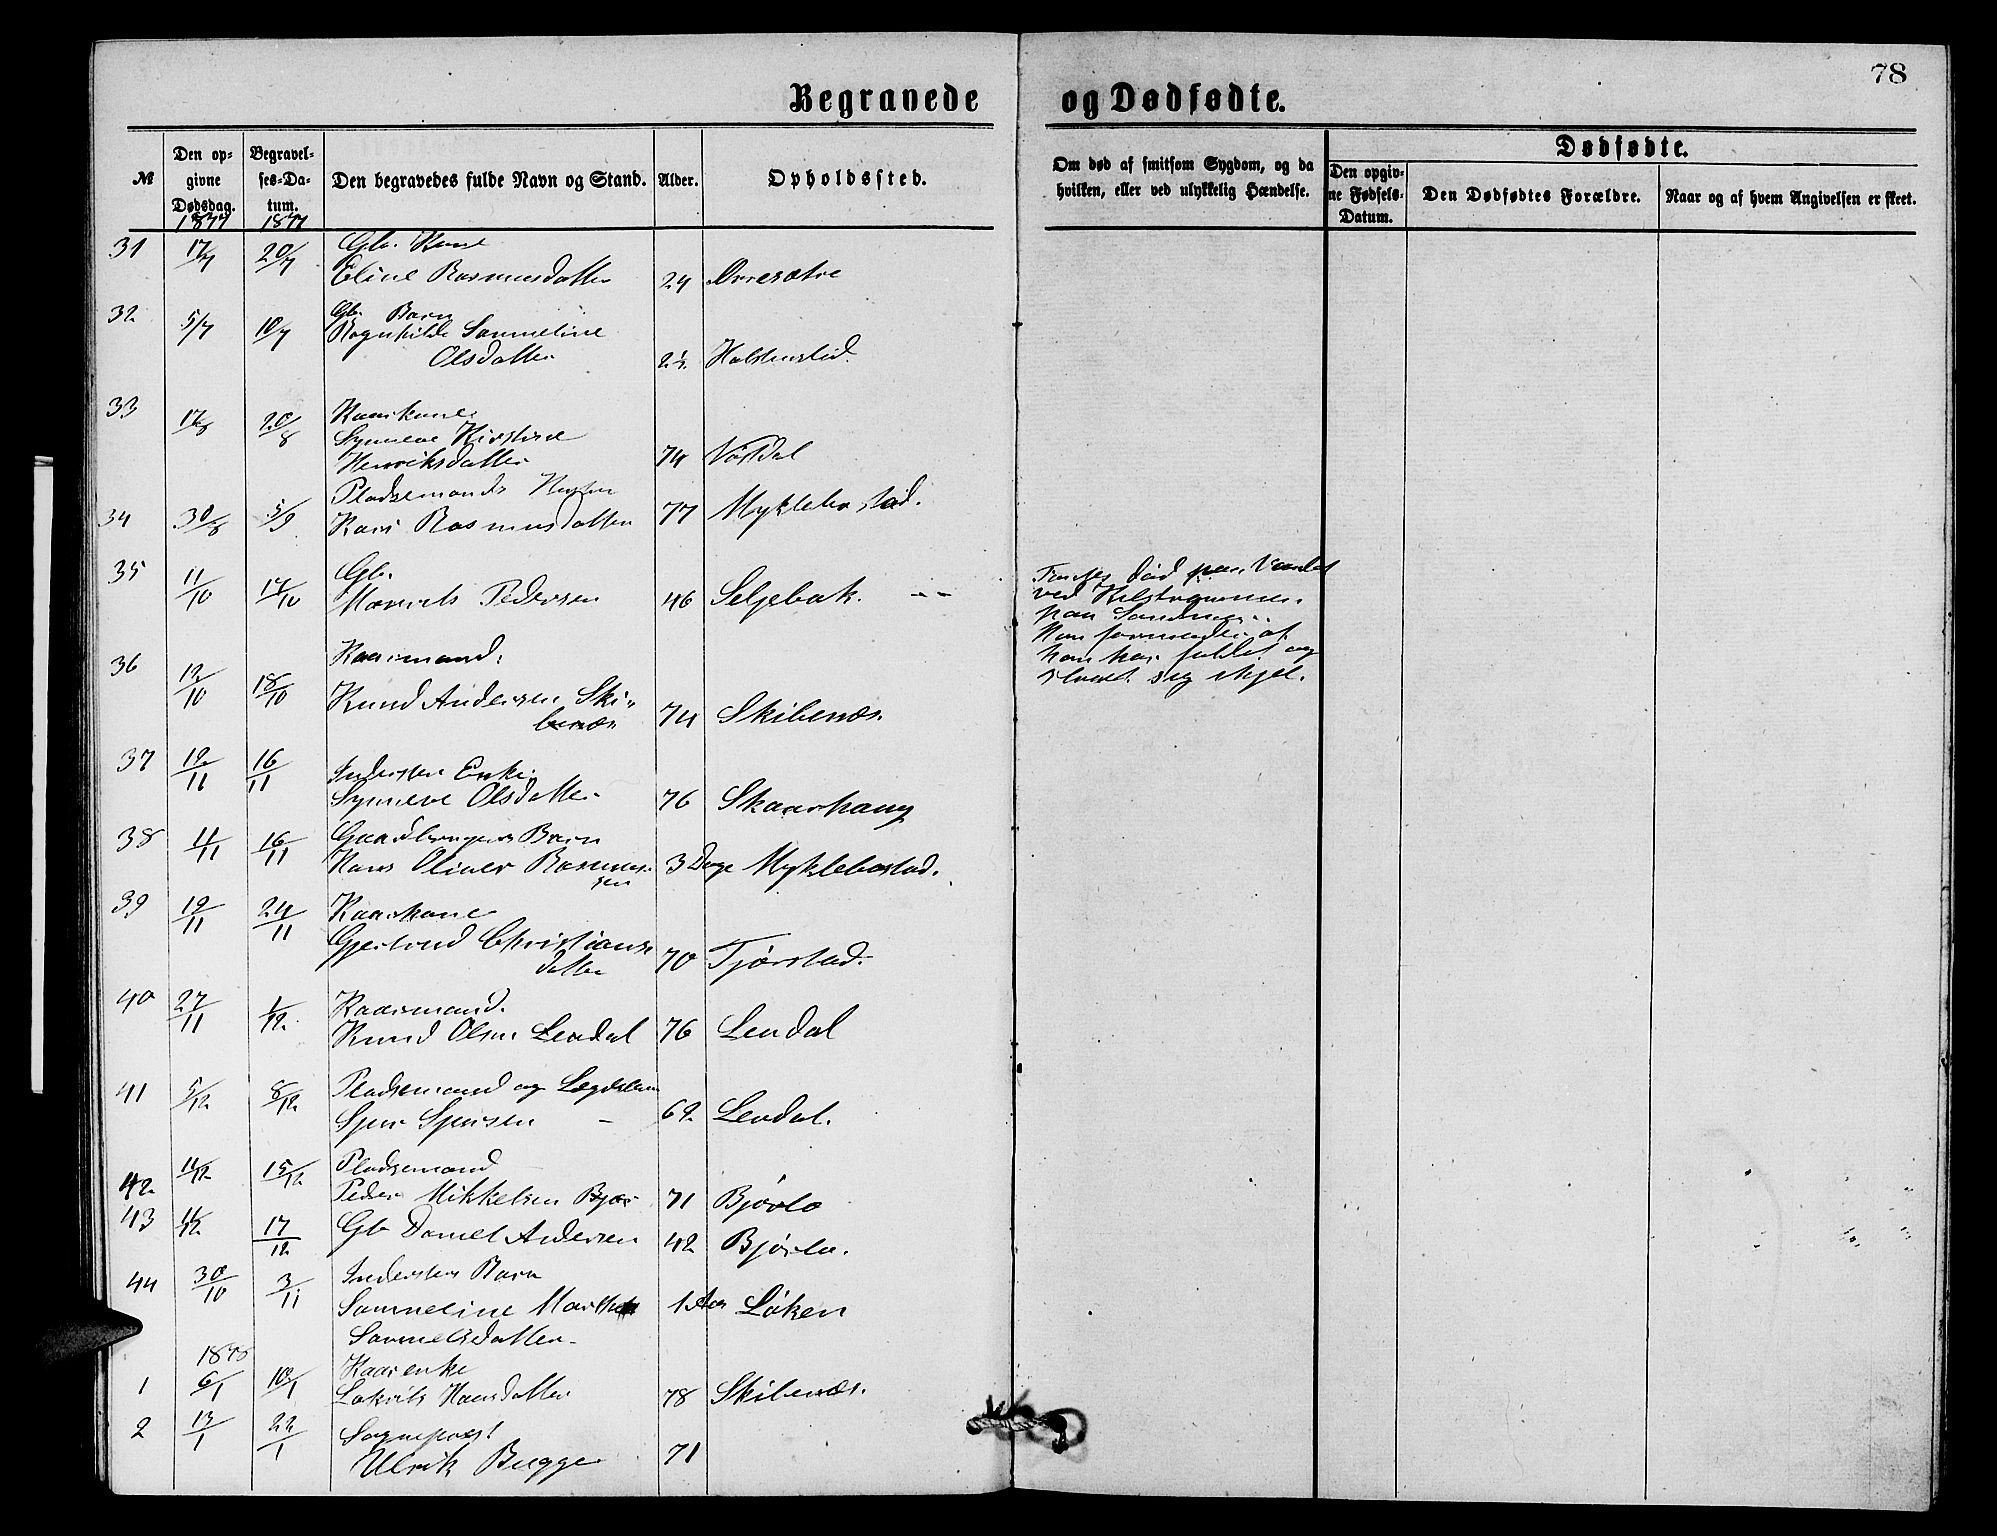 78
Begravede og Dødfødte.
№
Den opgivne Dødsdag.
Begravelses-Datum.
Den begravedes fulde Navn og Stand.
Alder.
Opholdssted.
Om død af smitsom Sygdom, og da hvilken, eller ved ulykkelig Hændelse.
Dødfødte.
Den opgivne Fødsels-Datum.
Den Dødfødtes Forældre.
Naar og af hvem Angivelsen er skeet.
1877 1877
31 17/7 20/7 Gb. Kone
Eline Rasmusdatter 29 Orresætre
32 5/7 10/7 Gb. Barn
Ragnhilde Sammeline
Olsdatter
33 17/8 20/8 Kaarkone
Synneve Kirstine
Henriksdatter 74
34 30/8 5/9 Pladsemands
Kari Rasmusdatter 77 Myklebostad.
35 11/10 17/10 Gb.
Pedersen 46 Seljebak.
død paa Vandet
ved
paa
Han formodes at
han har faldet og
slaaet sig ihjel.
36 12/10 18/10 Kaarmand.
Knud Andersen Ski-
benæs 74 Skibenæs.
37 12/11 16/11 Inderstes Enke
Synneve Olsdatter 76 Skaarhaug
38 11/11 16/11 Gaardbrugers Barn
Hans Oliver Rasmus-
sen 3 Dage Myklebostad.
39 19/11 24/11 Kaarkone
Gjertrud Christians-
datter 70 Tjørstad.
40 27/11 1/12 Kaarmand.
Knud Olsen Levdal 76 Levdal
41 5/12 8/12 Pladsemand og Lægdslem
Sjur Sjursen 62 Levdal.
42 11/12 15/12 Pladsemand
Peder Mikkelsen 71 Bjørlo
43 11/12 17/12 Gb Daniel Andersen 42 Bjørlo.
44 30/10 3/11 Inderstes Barn
Sammeline 1 Aar Løken
Samuelsdatter
1878
1 6/1 10/1 Kaarenke
Hansdatter 78 Skibenæs.
2 13/1 22/1 Sogneprest
Ulrik Bugge 71